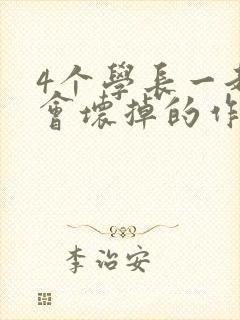 4个學長一
會壞掉的作
李治安